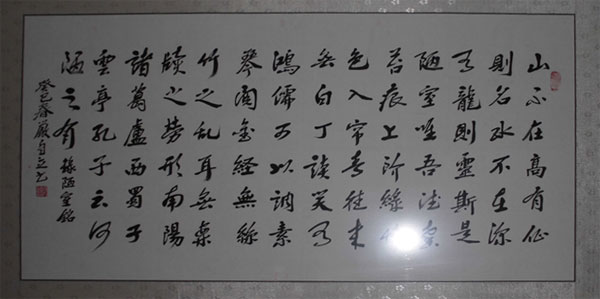 山不在高有仙
則名水不在深
有龍則靈斯是
陋室唯吾德馨
苔痕上階綠草
色入帘青往来
無白丁談笑有
鴻儒可以調素
琴閱金經無絲
竹之亂耳無案
牘之勞形南陽
諸葛廬西蜀子
雲亭孔子云何
陋之有 錄陋室銘
癸巳春嚴自立書